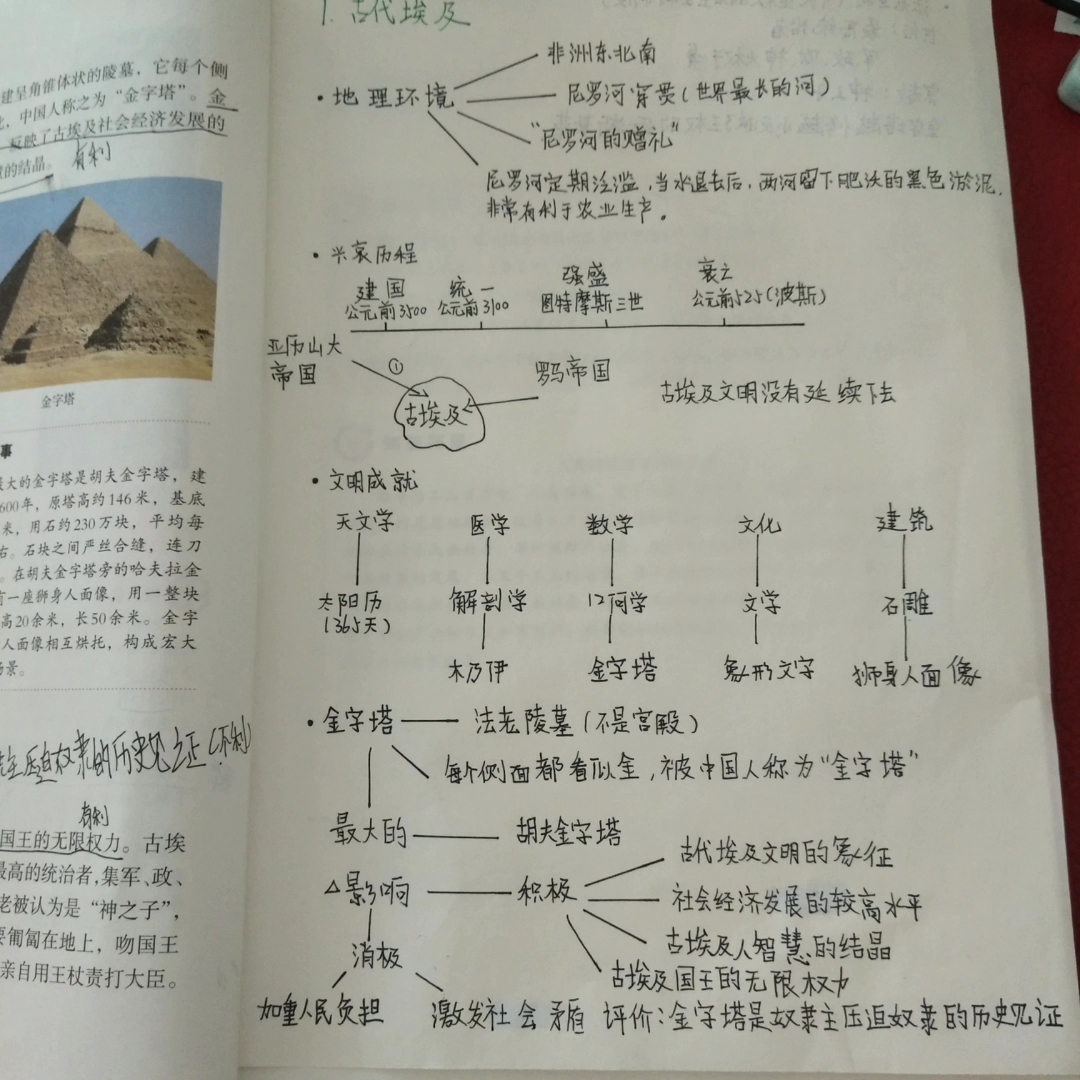 建呈角锥体状的陵墓，它每个侧
，中国人称之为“金字塔”。金
反映了古埃及社会经济发展的
的结晶。
有利
金字塔
事
最大的金字塔是胡夫金字塔，建
600年，原塔高约146米，基底
米，用石约230万块，平均每
右。石块之间严丝合缝，连刀
。在胡夫金字塔旁的哈夫拉金
有一座狮身人面像，用一整块
高20余米，长50余米。金字
人面像相互烘托，构成宏大
场景。
主压迫奴隶的历史见证(不利)
有利
国王的无限权力。古埃
最高的统治者，集军、政、
老被认为是“神之子”，
要匍匐在地上，吻国王
亲自用王杖责打大臣。
1. 古代埃及
·地理环境
非洲东北南
尼罗河穿贯(世界最长的河)
“尼罗河的赠礼”
尼罗河定期泛滥，当水退去后，两河留下肥沃的黑色淤泥，
非常有利于农业生产。
·兴衰历程
建国 统一 强盛 衰亡
公元前3500 公元前3100 图特摩斯三世 公元前525(波斯)
亚历山大
帝国
①
古埃及
罗马帝国
古埃及文明没有延续下去
·文明成就
天文学 医学 数学 文化 建筑
太阳历 解剖学 几何学 文学 石雕
(365天)
木乃伊 金字塔 象形文字 狮身人面像
·金字塔 法老陵墓(不是宫殿)
每个侧面都看似金，被中国人称为“金字塔”
最大的 胡夫金字塔
△影响 积极
古代埃及文明的象征
社会经济发展的较高水平
古埃及人智慧的结晶
古埃及国王的无限权力
消极
加重人民负担 激发社会矛盾 评价：金字塔是奴隶主压迫奴隶的历史见证